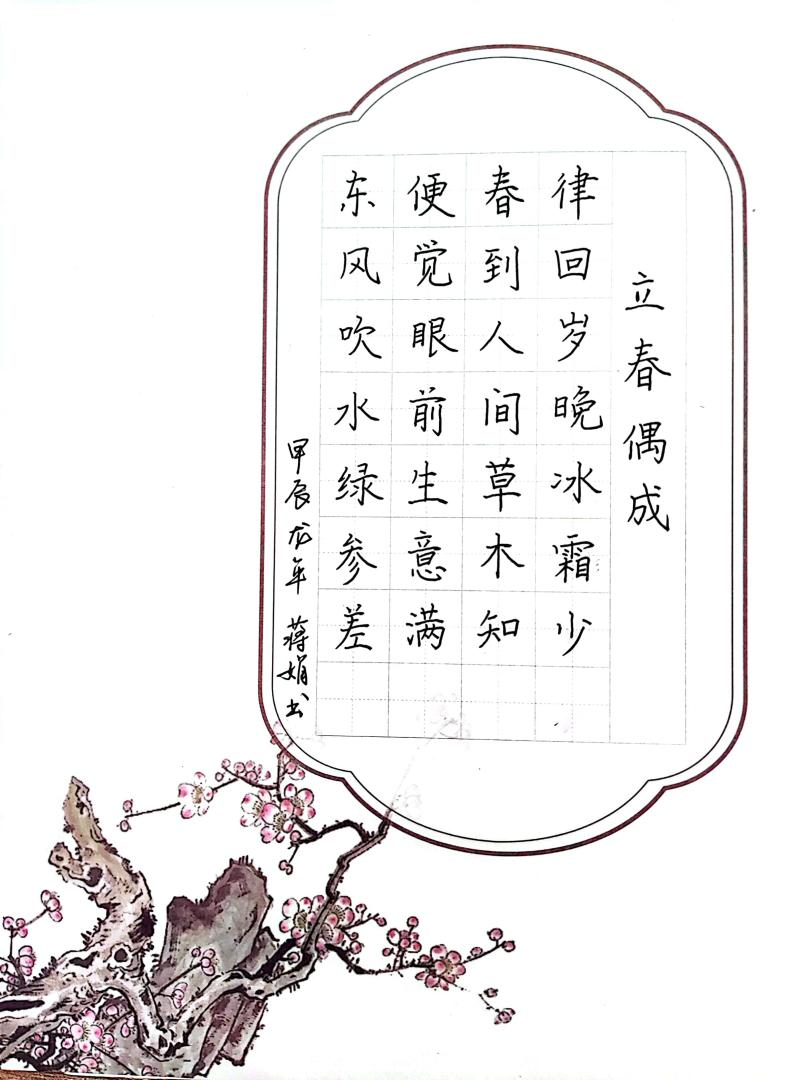 立春偶成
律回岁晚冰霜少
春到人间草木知
便觉眼前生意满
东风吹水绿参差
甲辰龙年 蒋娟书